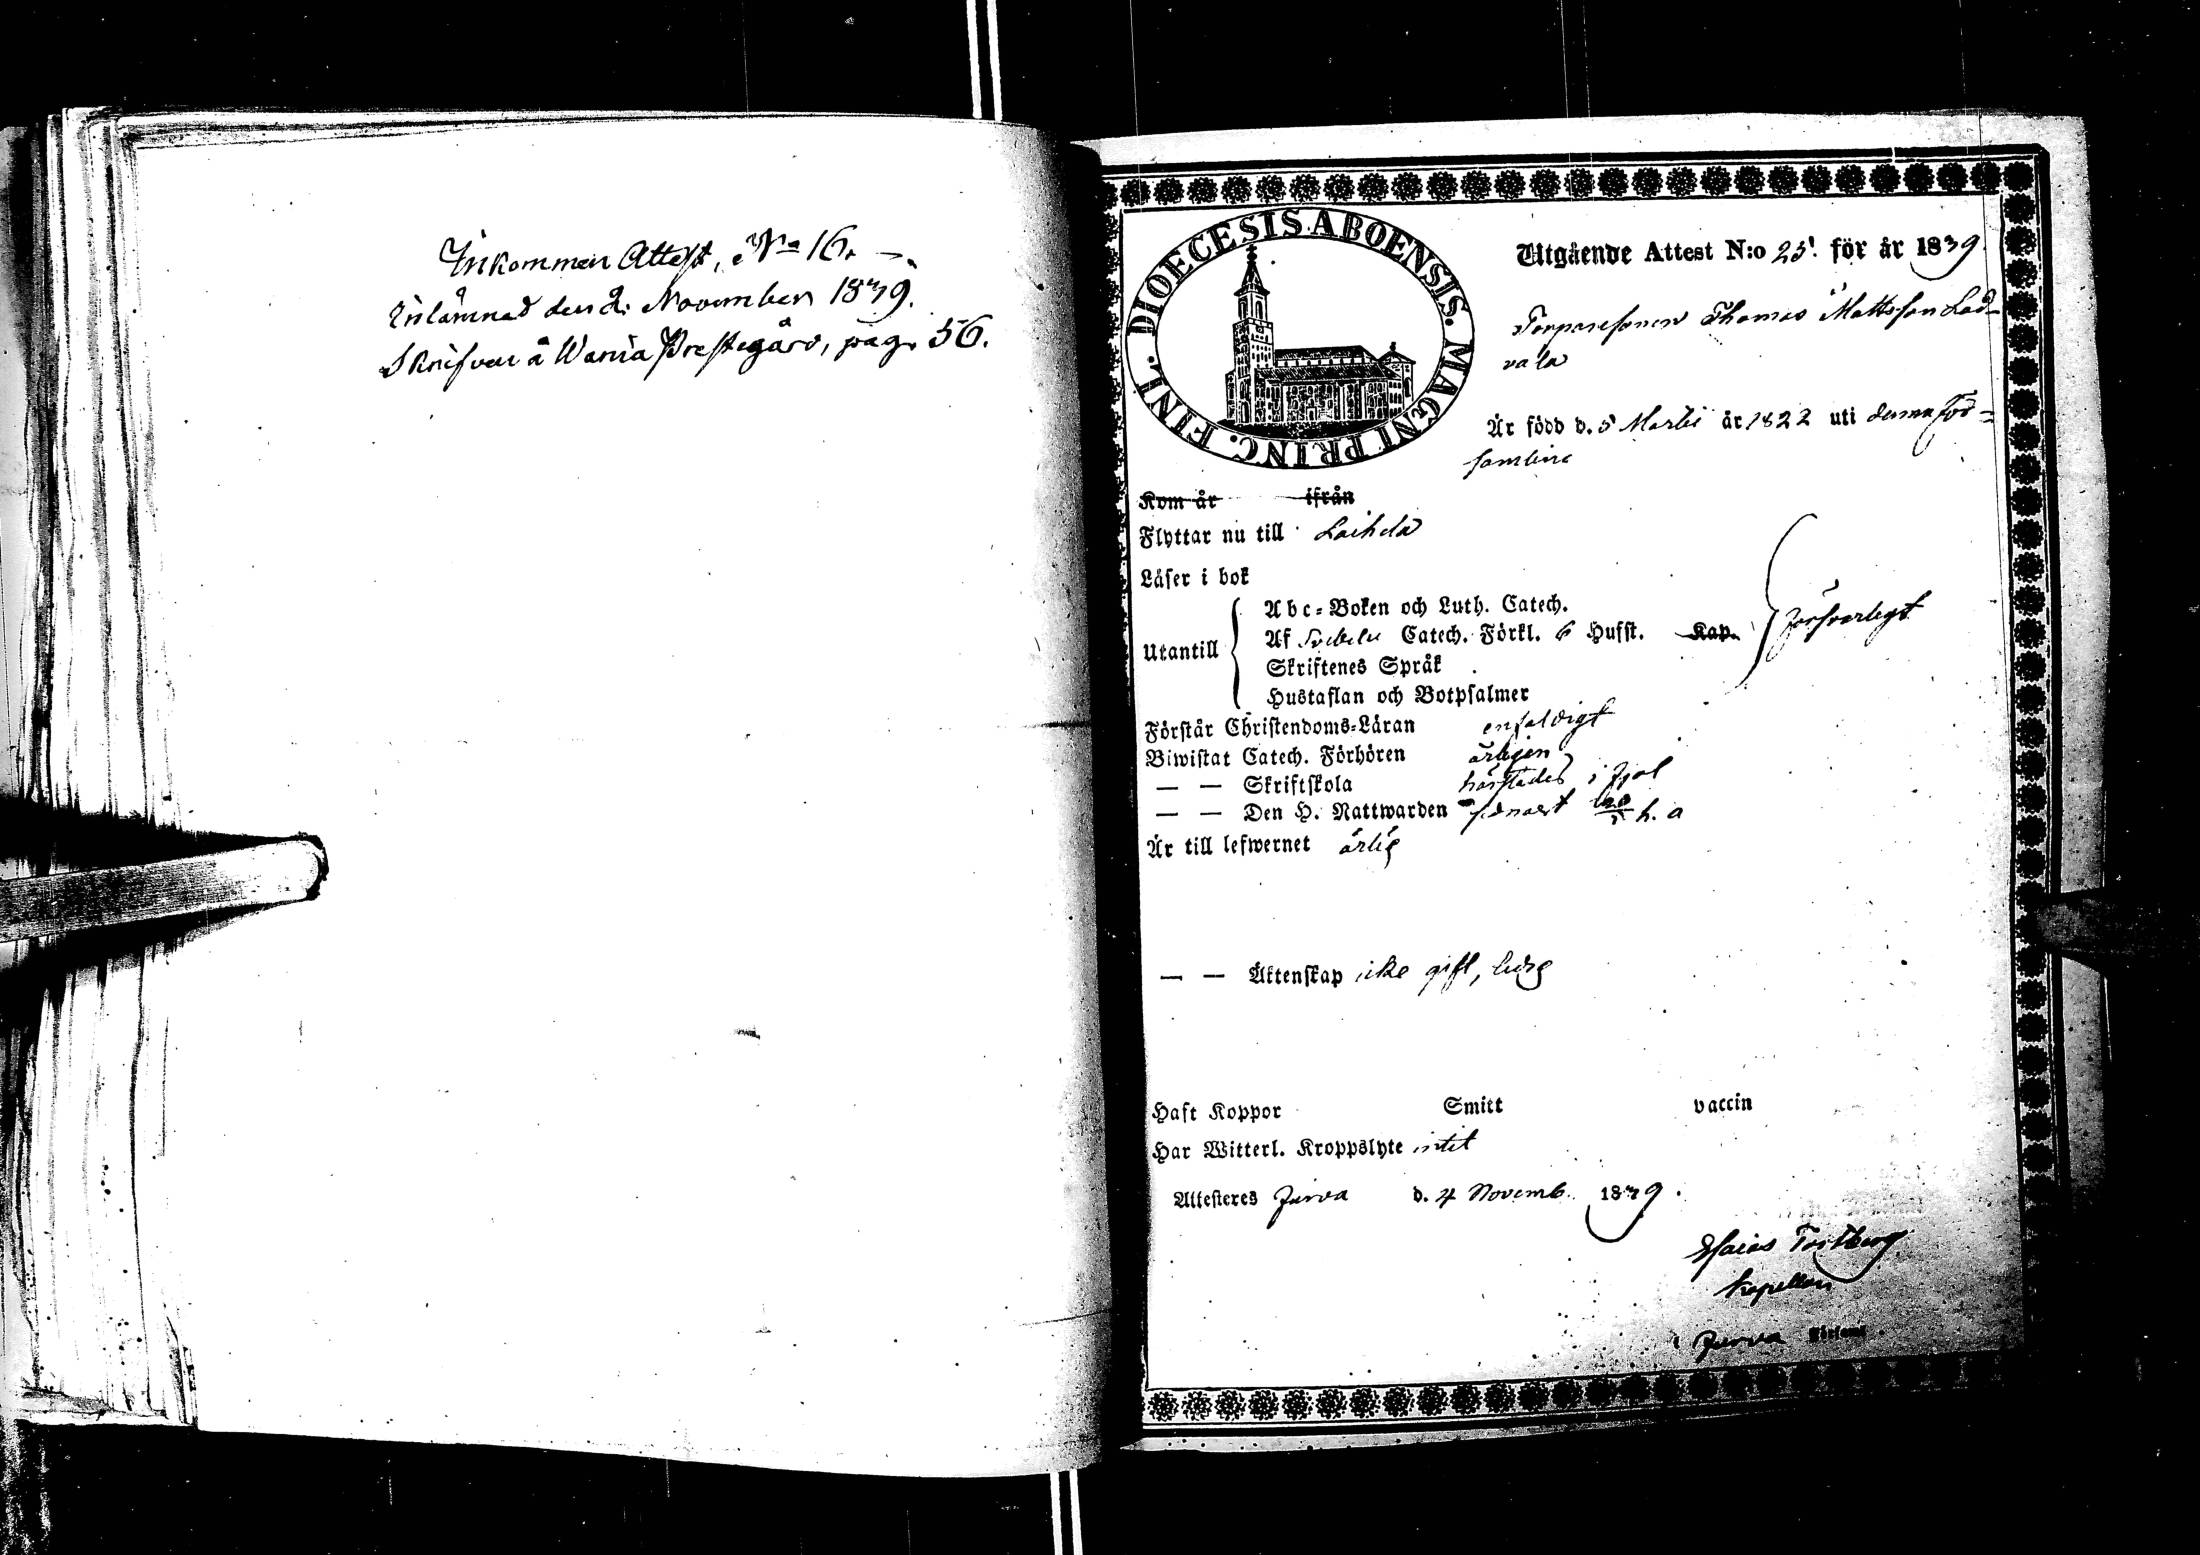 Inkommen Attest, No 16.
Inlämnad den 2. November 1839.
Skrifven å Waria Prestegård, pag. 56.
DIOECESIS ABOENSIS. MAGNI PRINC. FINL.
Utgående Attest N:o 25. för år 1839
Thomas Mattsson Lad-
vala
Är född d. 5 Martii år 1822 uti denna För-
samling
Kom år ifrån
Flyttar nu till Laihela
Läser i bok
Utantill
Abc-Boken och Luth. Catech.
Af Svebelii Catech. Förkl. 6 Hufst. Kap.
försvarligt
Skriftenes Språk
Hustaflan och Botpsalmer
Förstår Christendoms-Läran enfaldigt
Biwistat Catech. Förhören årligen
— — Skriftskola i fjol
— — Den H. Nattwarden senast h. a
Är till lefwernet ärlig
— — Äktenskap icke gift, ledig
Haft Koppor Smitt vaccin
Har Witterl. Kroppslyte intet
Attesteres Jurva d. 4 Novemb. 1839.
Esaias
Kapellan
i Jurva Församl.